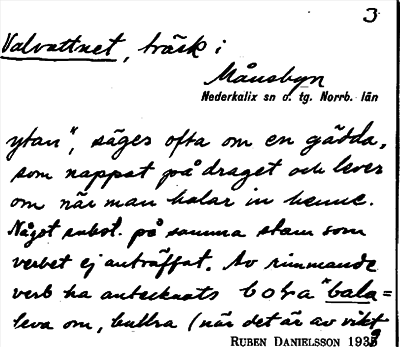 3
Valvattnet, träsk i
Månsbyn
Nederkalix sn o. tg. Norrb. län
ytan", säges ofta om en gädda,
som nappat på draget och lever
om när man halar in henne.
Något subst. på samma stam som
verbet ej anträffat. Av rimmande
verb ha antecknats bola "bala=
leva om, bullra (när det är av vikt
RUBEN DANIELSSON 1939